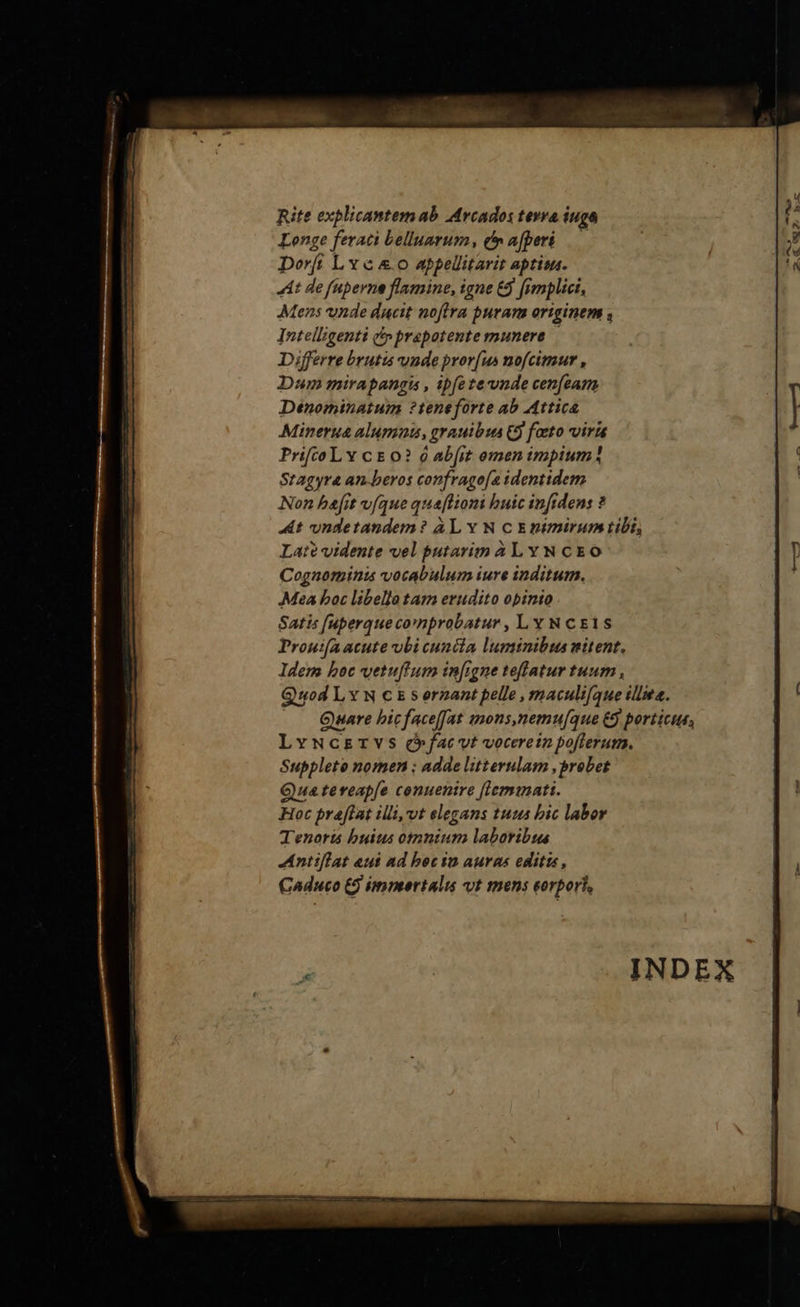 Rite explicantem ab Arcados terra iuga
Longe ferati belluarum, & aſperi
Dorſi LYCÆO appellitarit aptius.
At de ſuperne flamine, igne & ſimplici,
Mens vnde ducit noſtra puram originem,
Intelligenti & præpotente munere
Differre brutis vnde prorſus noſcimur,
Dum mira pangis, ipſe te vnde cenſeam
Denominatum? tene forte ab Attica
Minerua alumnis, grauibus & fœto viris
Priſco LYCEO? ô abſit omen impium!
Stagyræ an heros confragoſæ identidem
Non hæſit vſque quæſtioni huic inſidens?
At vnde tandem? à LYNCE nimirum tibi,
Latè vidente vel putarim à LYNCEO
Cognominis vocabulum iure inditum.
Mea hoc libello tam erudito opinio
Satis ſuperque comprobatur, LYNCEIS
Prouiſa acute vbi cuncta luminibus nitent.
Idem hoc vetuſtum inſigne teſtatur tuum,
Quod LYNCES ornant pelle, maculiſque illitæ.
Quare hic faceſſat mons, nemuſque & porticus,
LYNCETVS & fac vt vocere in poſterum.
Suppleto nomen: adde litterulam, probet
Qua te reapſe conuenire ſtemmati.
Hoc præſtat illi, vt elegans tuus hic labor
Tenoris huius omnium laboribus
Antiſtat æui ad hoc in auras editis,
Caduco & immortalis vt mens corpori.
INDEX